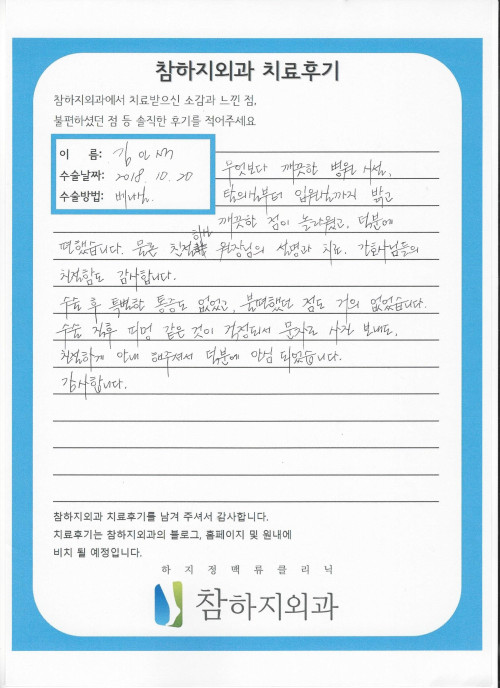 참하지외과 치료후기
참하지외과에서 치료받으신 소감과 느낀 점,
불편하셨던 점 등 솔직한 후기를 적어주세요
이 름: 김인
수술날짜: 2018. 10. 20
수술방법: 베나실.
무엇보다 깨끗한 병원 시설,
탈의실부터 입원실까지 밝고
깨끗한 점이 놀라웠고, 덕분에
편했습니다. 물론 친절하신 원장님의 설명과 치료, 간호사님들의
친절함도 감사합니다.
수술 후 특별한 통증도 없었고, 불편했던 점도 거의 없었습니다.
수술 직후 피멍 같은 것이 걱정되서 문자로 사진 보내도,
친절하게 안내 해주셔서 덕분에 안심 되었습니다.
감사합니다.
참하지외과 치료후기를 남겨 주셔서 감사합니다.
치료후기는 참하지외과의 블로그, 홈페이지 및 원내에
비치 될 예정입니다.
하지정맥류클리닉
참하지외과